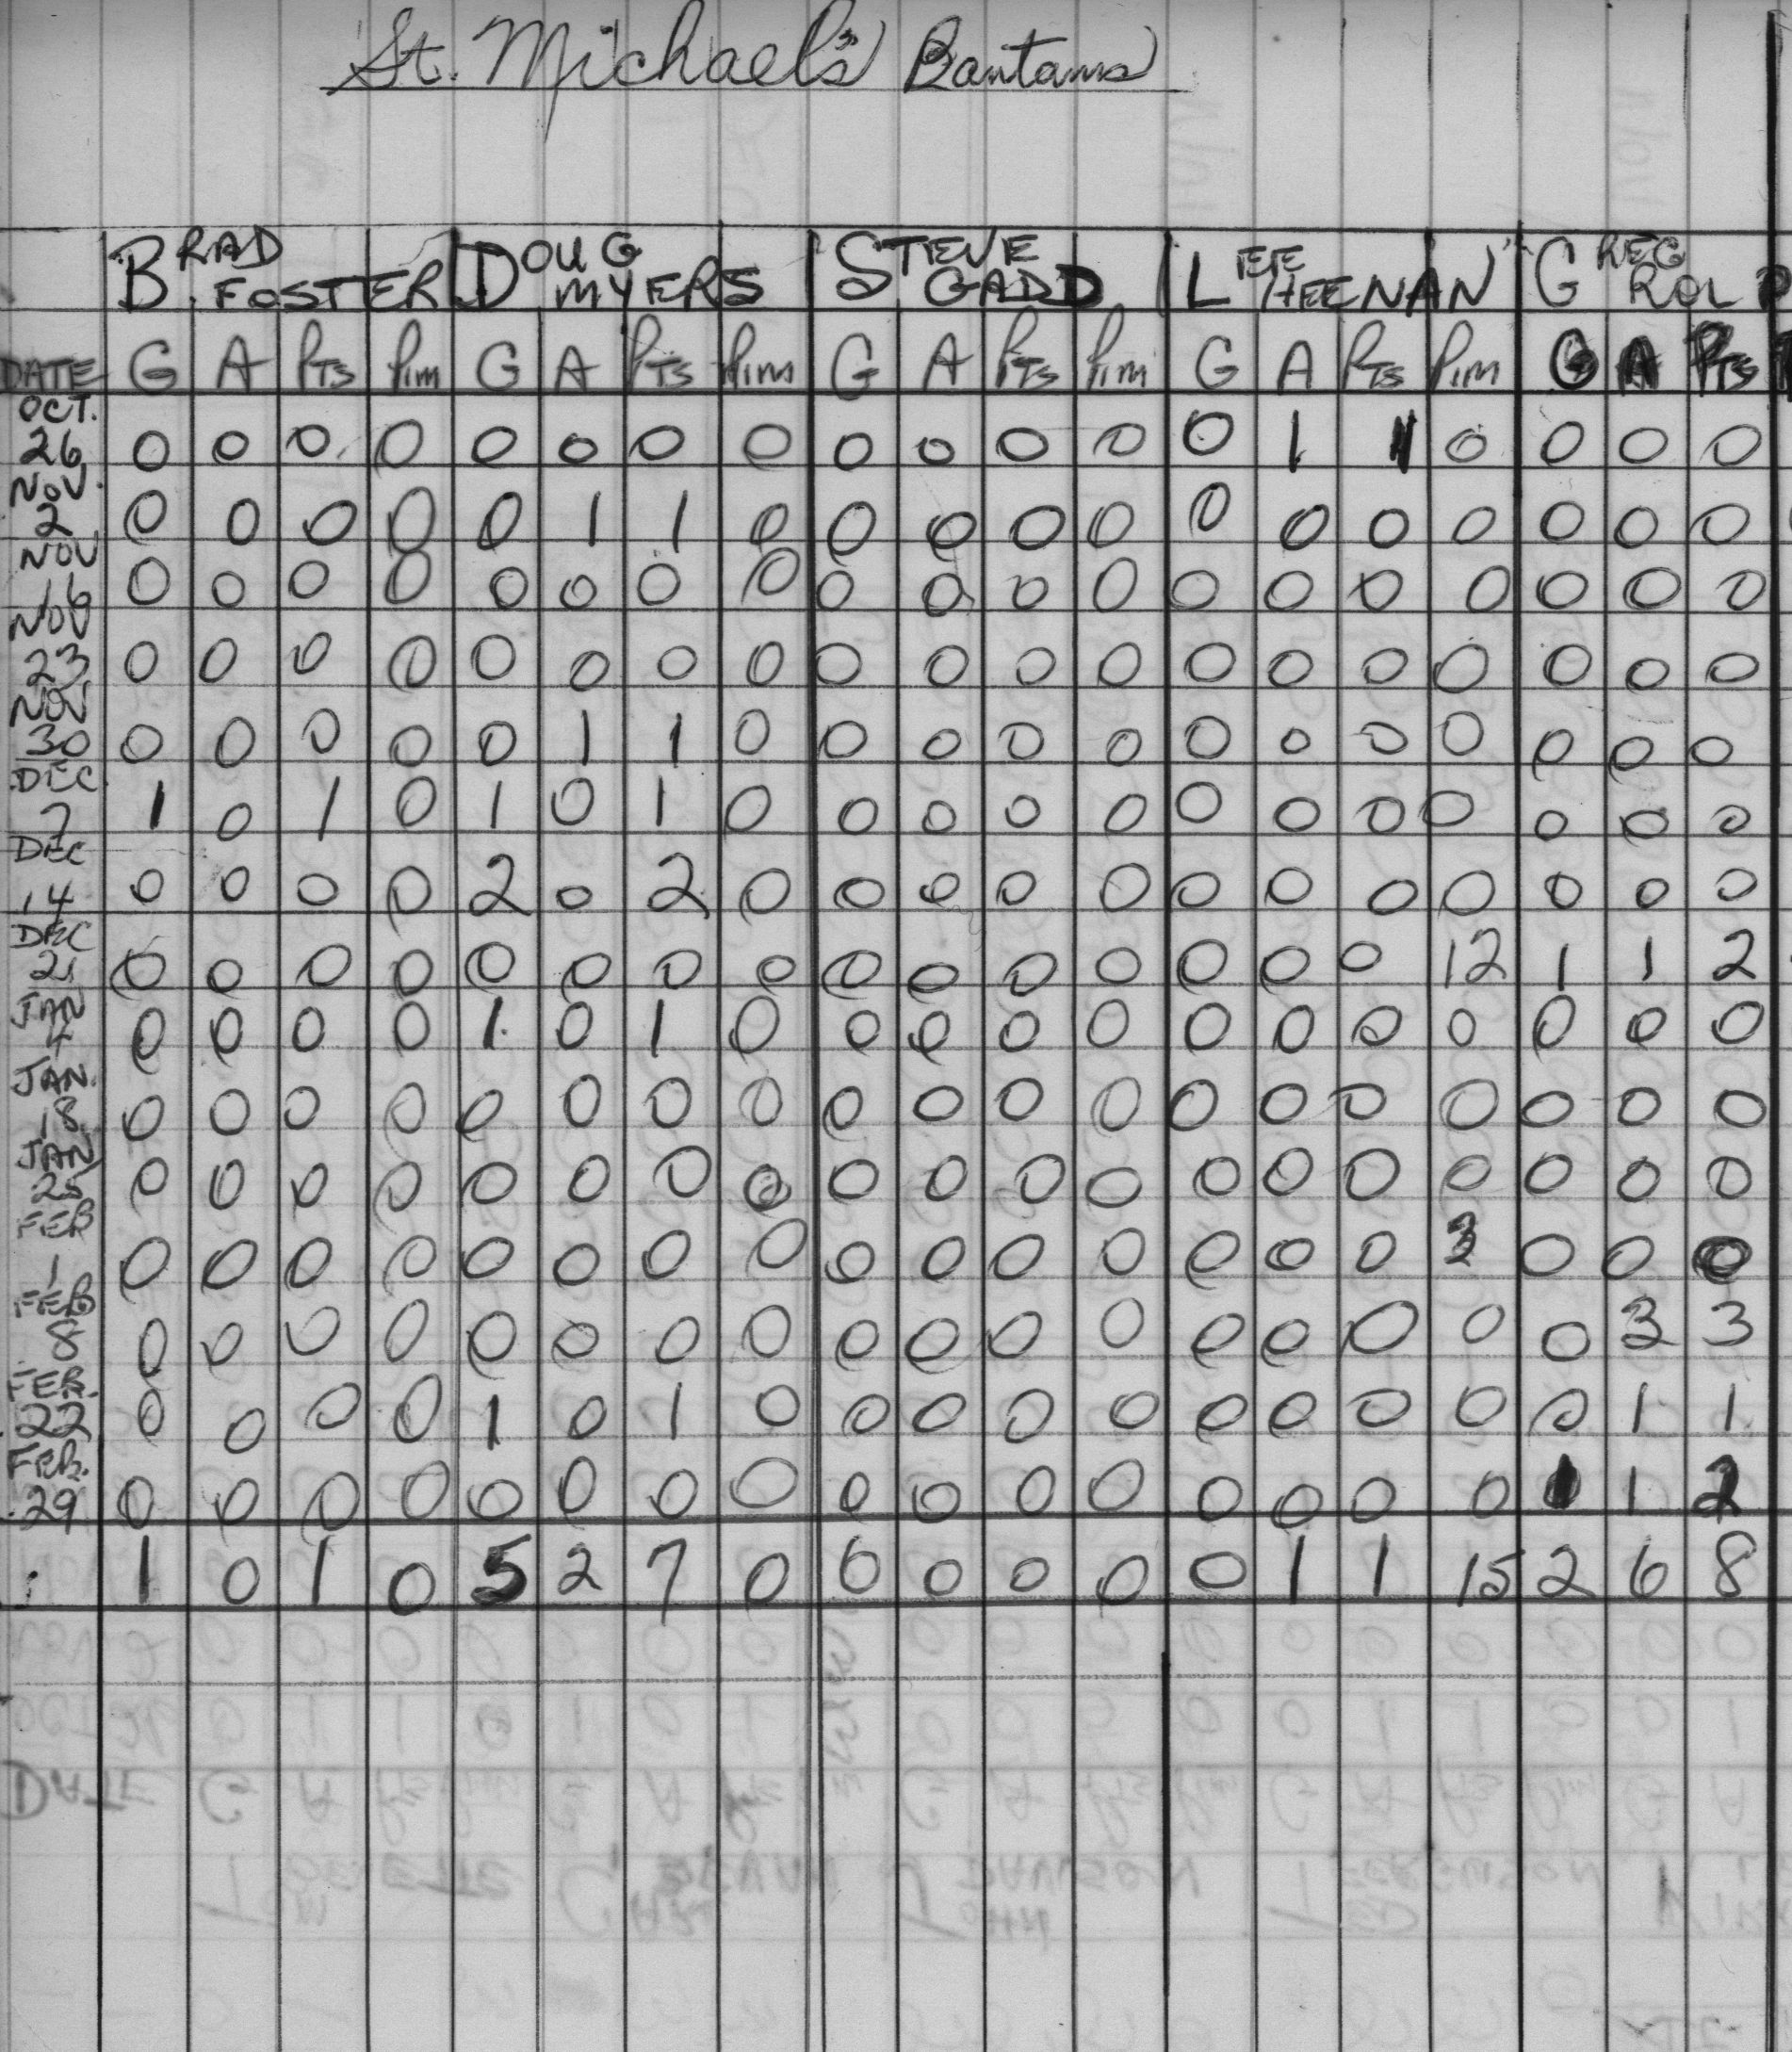 St. Michael's Bantams
BRAD FOSTER DOUG MYERS STEVE GADD LEE HEENAN GREG ROLP
DATE G A Pts Pim G A Pts Pim G A Pts Pim G A Pts Pim G A Pts
OCT. 26 0 0 0 0 0 0 0 0 0 0 0 0 0 1 1 0 0 0 0
NOV. 2 0 0 0 0 0 1 1 0 0 0 0 0 0 0 0 0 0 0 0
NOV 16 0 0 0 0 0 0 0 0 0 0 0 0 0 0 0 0 0 0 0
NOV 23 0 0 0 0 0 0 0 0 0 0 0 0 0 0 0 0 0 0 0
NOV 30 0 0 0 0 0 1 1 0 0 0 0 0 0 0 0 0 0 0 0
DEC. 7 1 0 1 0 1 0 1 0 0 0 0 0 0 0 0 0 0 0 0
DEC 14 0 0 0 0 2 0 2 0 0 0 0 0 0 0 0 0 0 0 0
DEC 21 0 0 0 0 0 0 0 0 0 0 0 0 0 0 0 12 1 1 2
JAN 4 0 0 0 0 1 0 1 0 0 0 0 0 0 0 0 0 0 0 0
JAN. 18 0 0 0 0 0 0 0 0 0 0 0 0 0 0 0 0 0 0 0
JAN 25 0 0 0 0 0 0 0 0 0 0 0 0 0 0 0 0 0 0 0
FEB 1 0 0 0 0 0 0 0 0 0 0 0 0 0 0 0 3 0 0 0
FEB 8 0 0 0 0 0 0 0 0 0 0 0 0 0 0 0 0 0 3 3
FEB. 22 0 0 0 0 1 0 1 0 0 0 0 0 0 0 0 0 0 1 1
FEB. 29 0 0 0 0 0 0 0 0 0 0 0 0 0 0 0 0 1 1 2
1 0 1 0 5 2 7 0 0 0 0 0 0 1 1 15 2 6 8